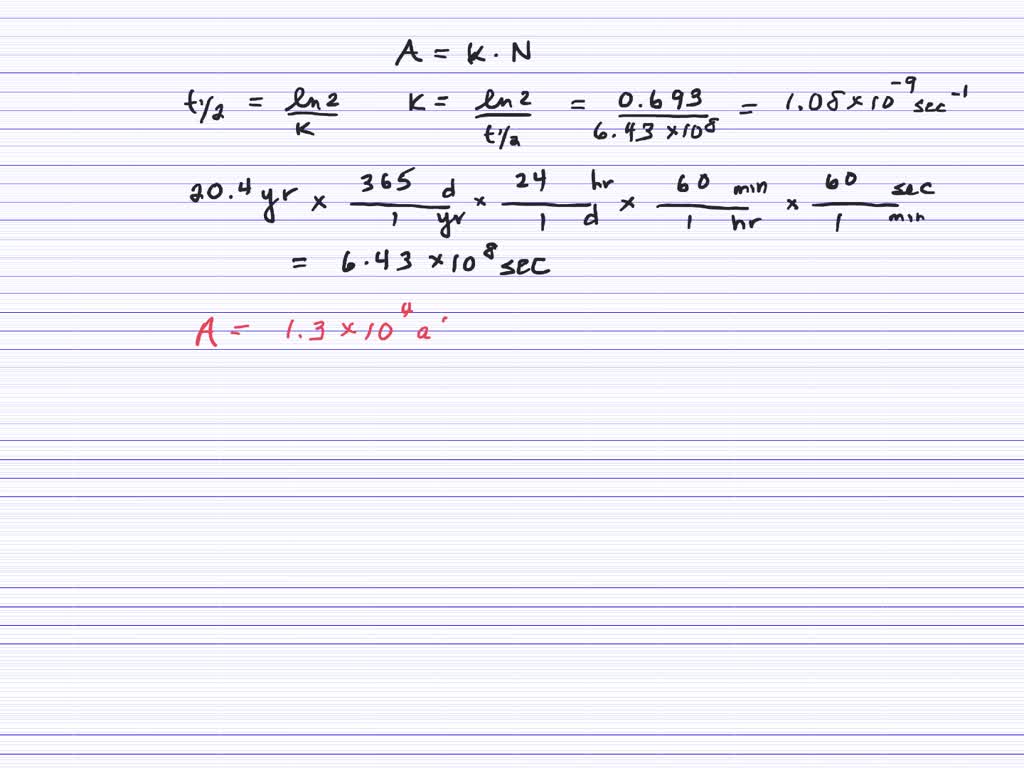 A = K · N
t1/2 = ln2/K K = ln2/t1/2 = 0.693/6.43 × 10^8 = 1.08 × 10^-9 sec^-1
20.4 yr × 365 d/1 yr × 24 hr/1 d × 60 min/1 hr × 60 sec/1 min
= 6.43 × 10^8 sec
A = 1.3 × 10^4 a